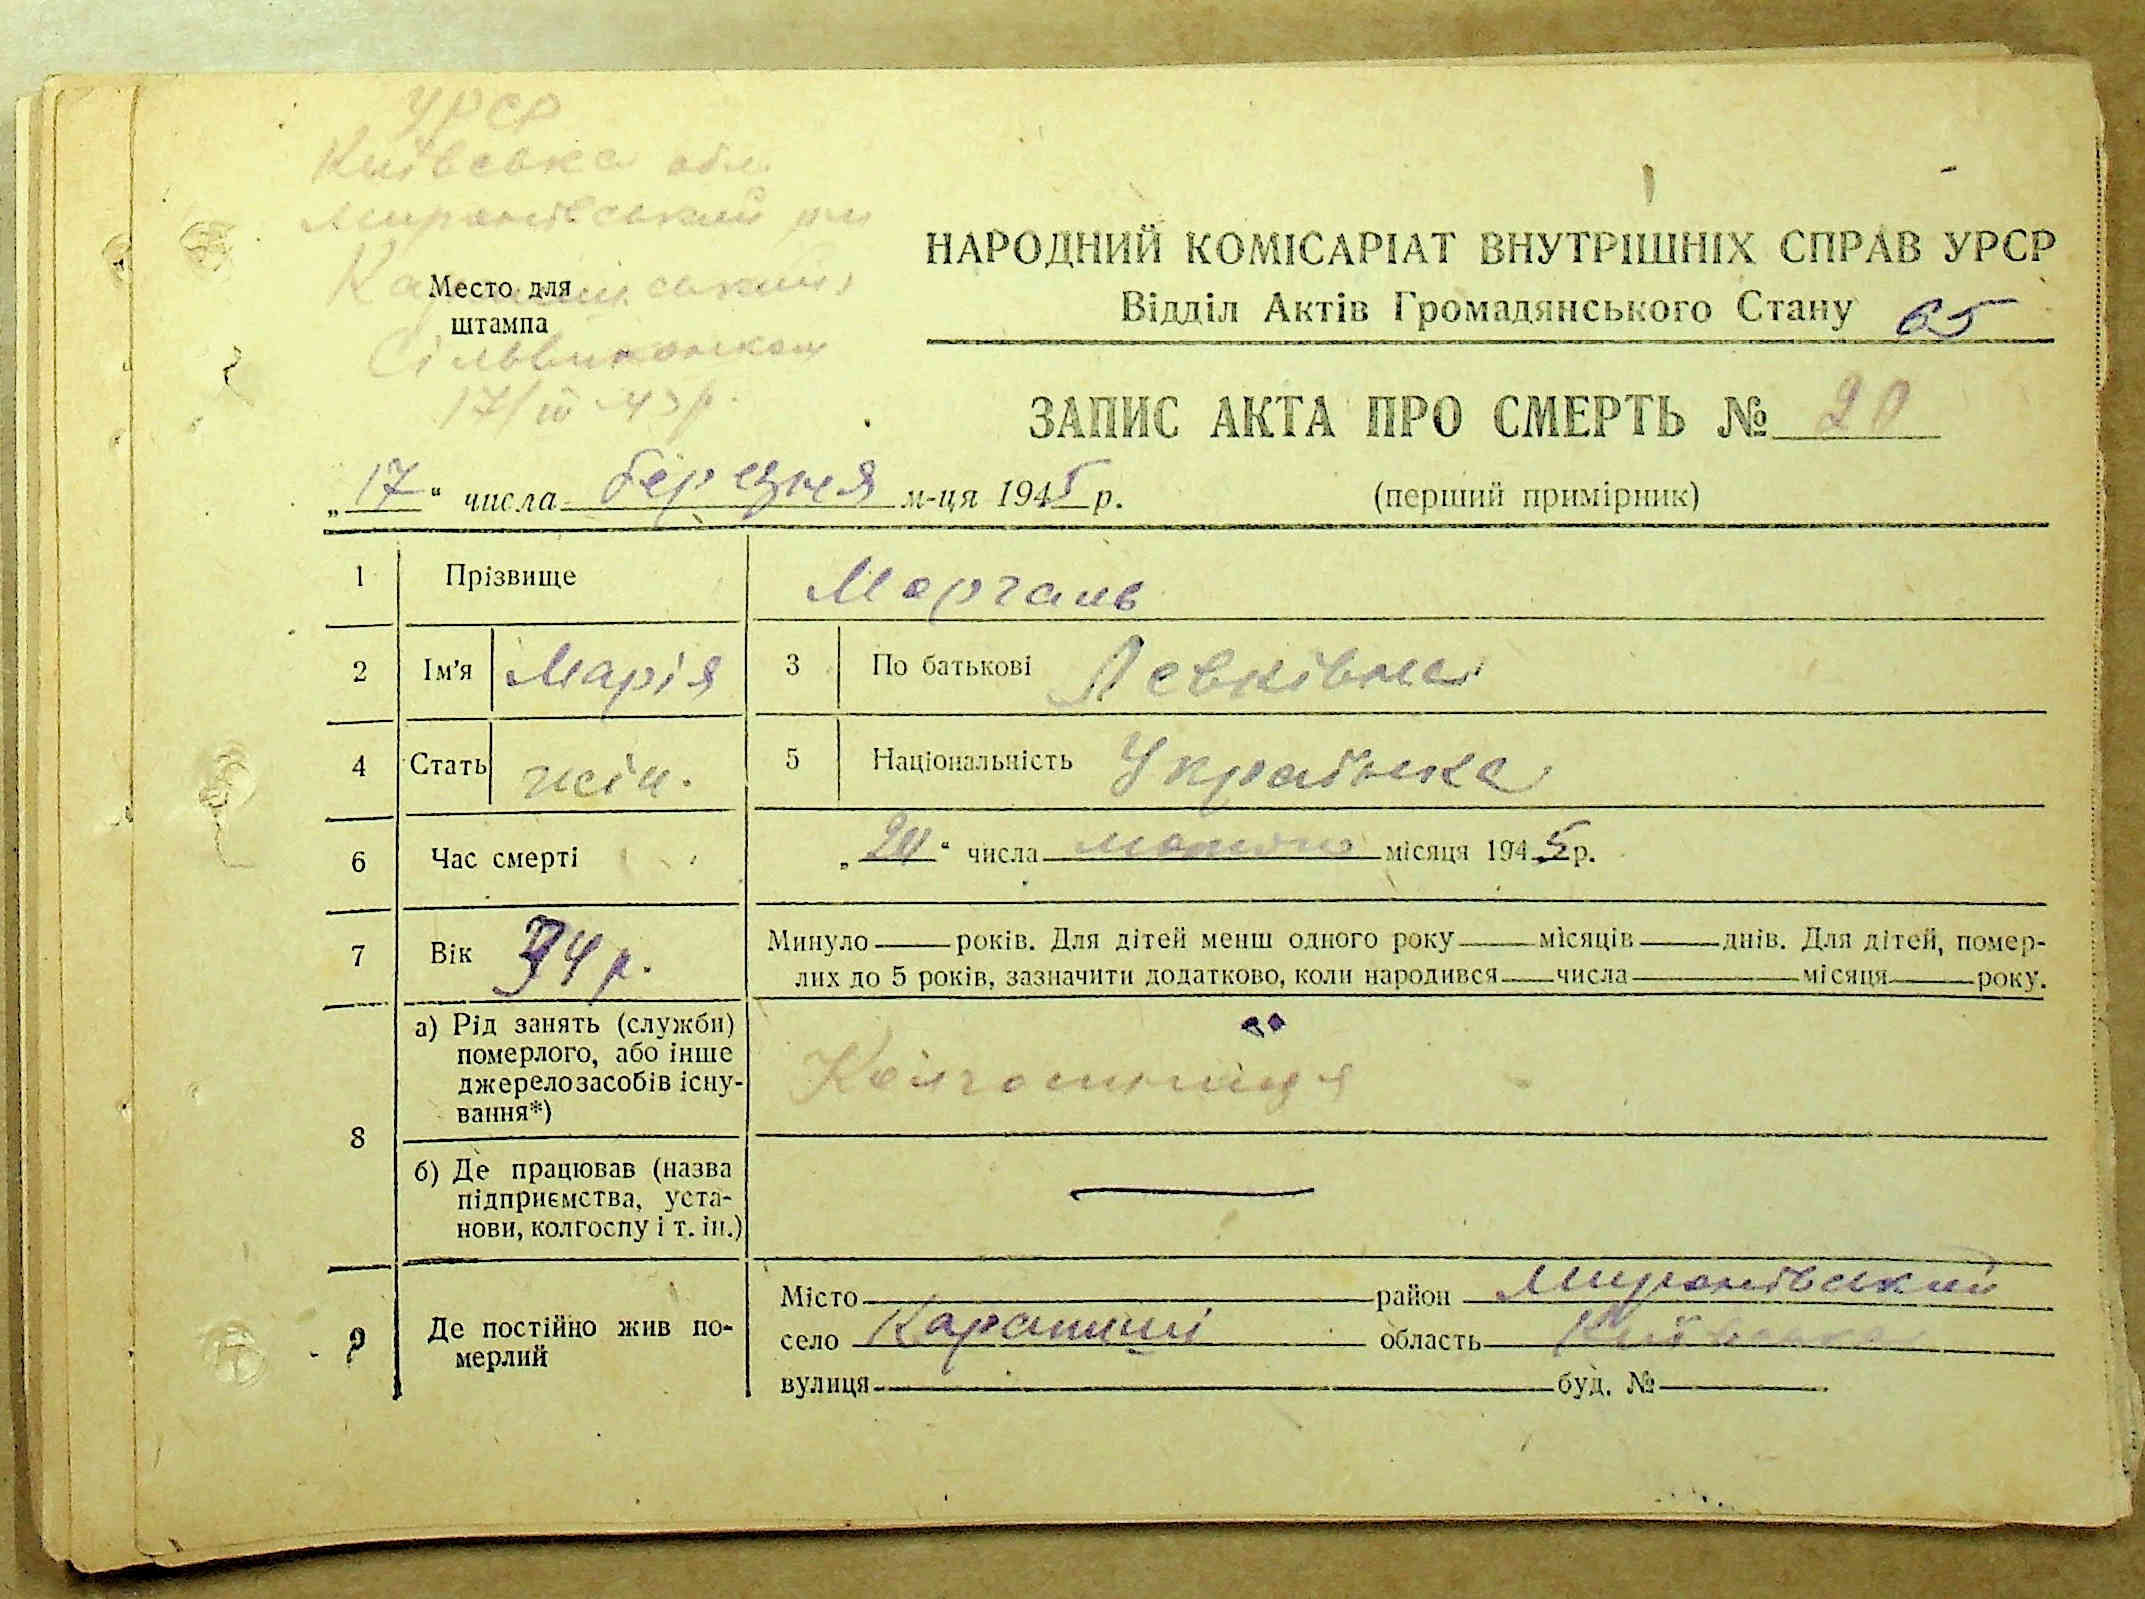 УРСР
Київська обл.
Миронівський р-н
Место для
штампа
Сільвиконком
17/III 45 р.
НАРОДНИЙ КОМІСАРІАТ ВНУТРІШНІХ СПРАВ УРСР
Відділ Актів Громадянського Стану 65
ЗАПИС АКТА ПРО СМЕРТЬ № 20
„17“ числа березня м-ця 1945 р. (перший примірник)
1 Прізвище Моргаль
2 Ім'я Марія 3 По батькові Левківна
4 Стать жін. 5 Національність Українка
6 Час смерті „24“ числа лютого місяця 1945 р.
7 Вік 34 р. Минуло років. Для дітей менш одного року місяців днів. Для дітей, помер-
лих до 5 років, зазначити додатково, коли народився числа місяця року.
8 а) Рід занять (служби)
померлого, або інше
джерело засобів існу-
вання*)
Колгоспниця
б) Де працював (назва
підприємства, уста-
нови, колгоспу і т. ін.)
9 Де постійно жив по-
мерлий
Місто район Миронівський
село Карапиші область Київська
вулиця буд. №